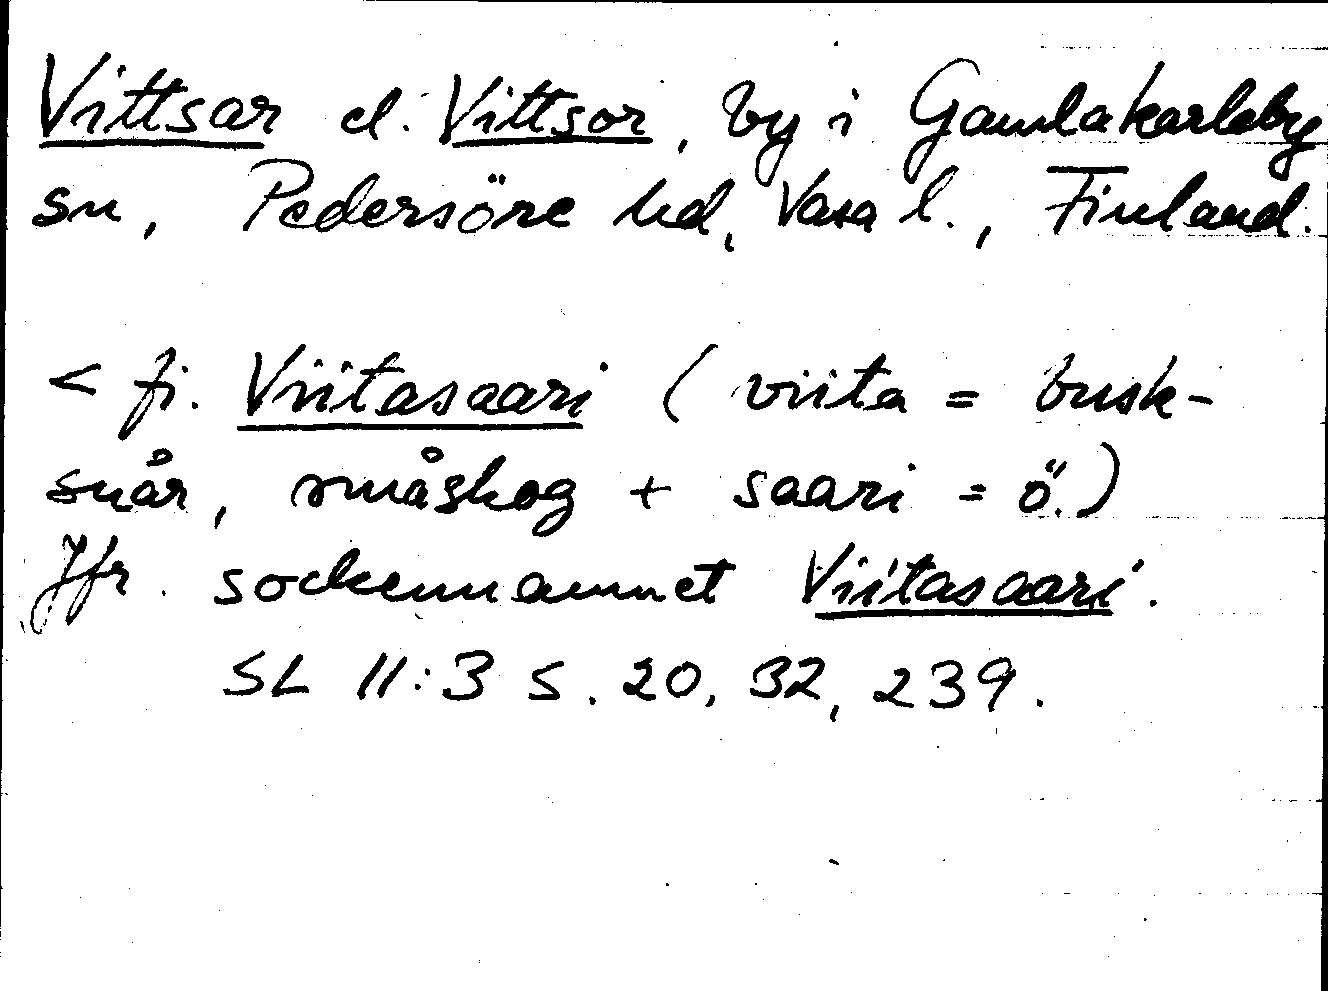 Vittsar el. Vittsor, by i Gamlakarleby
sn, Pedersöre hd, Vasa l., Finland.
< fi. Viitasaari (viita = busk-
snår, småskog + saari = ö.)
Jfr. sockennamnet Viitasaari.
SL 11:3 s. 20, 32, 239.